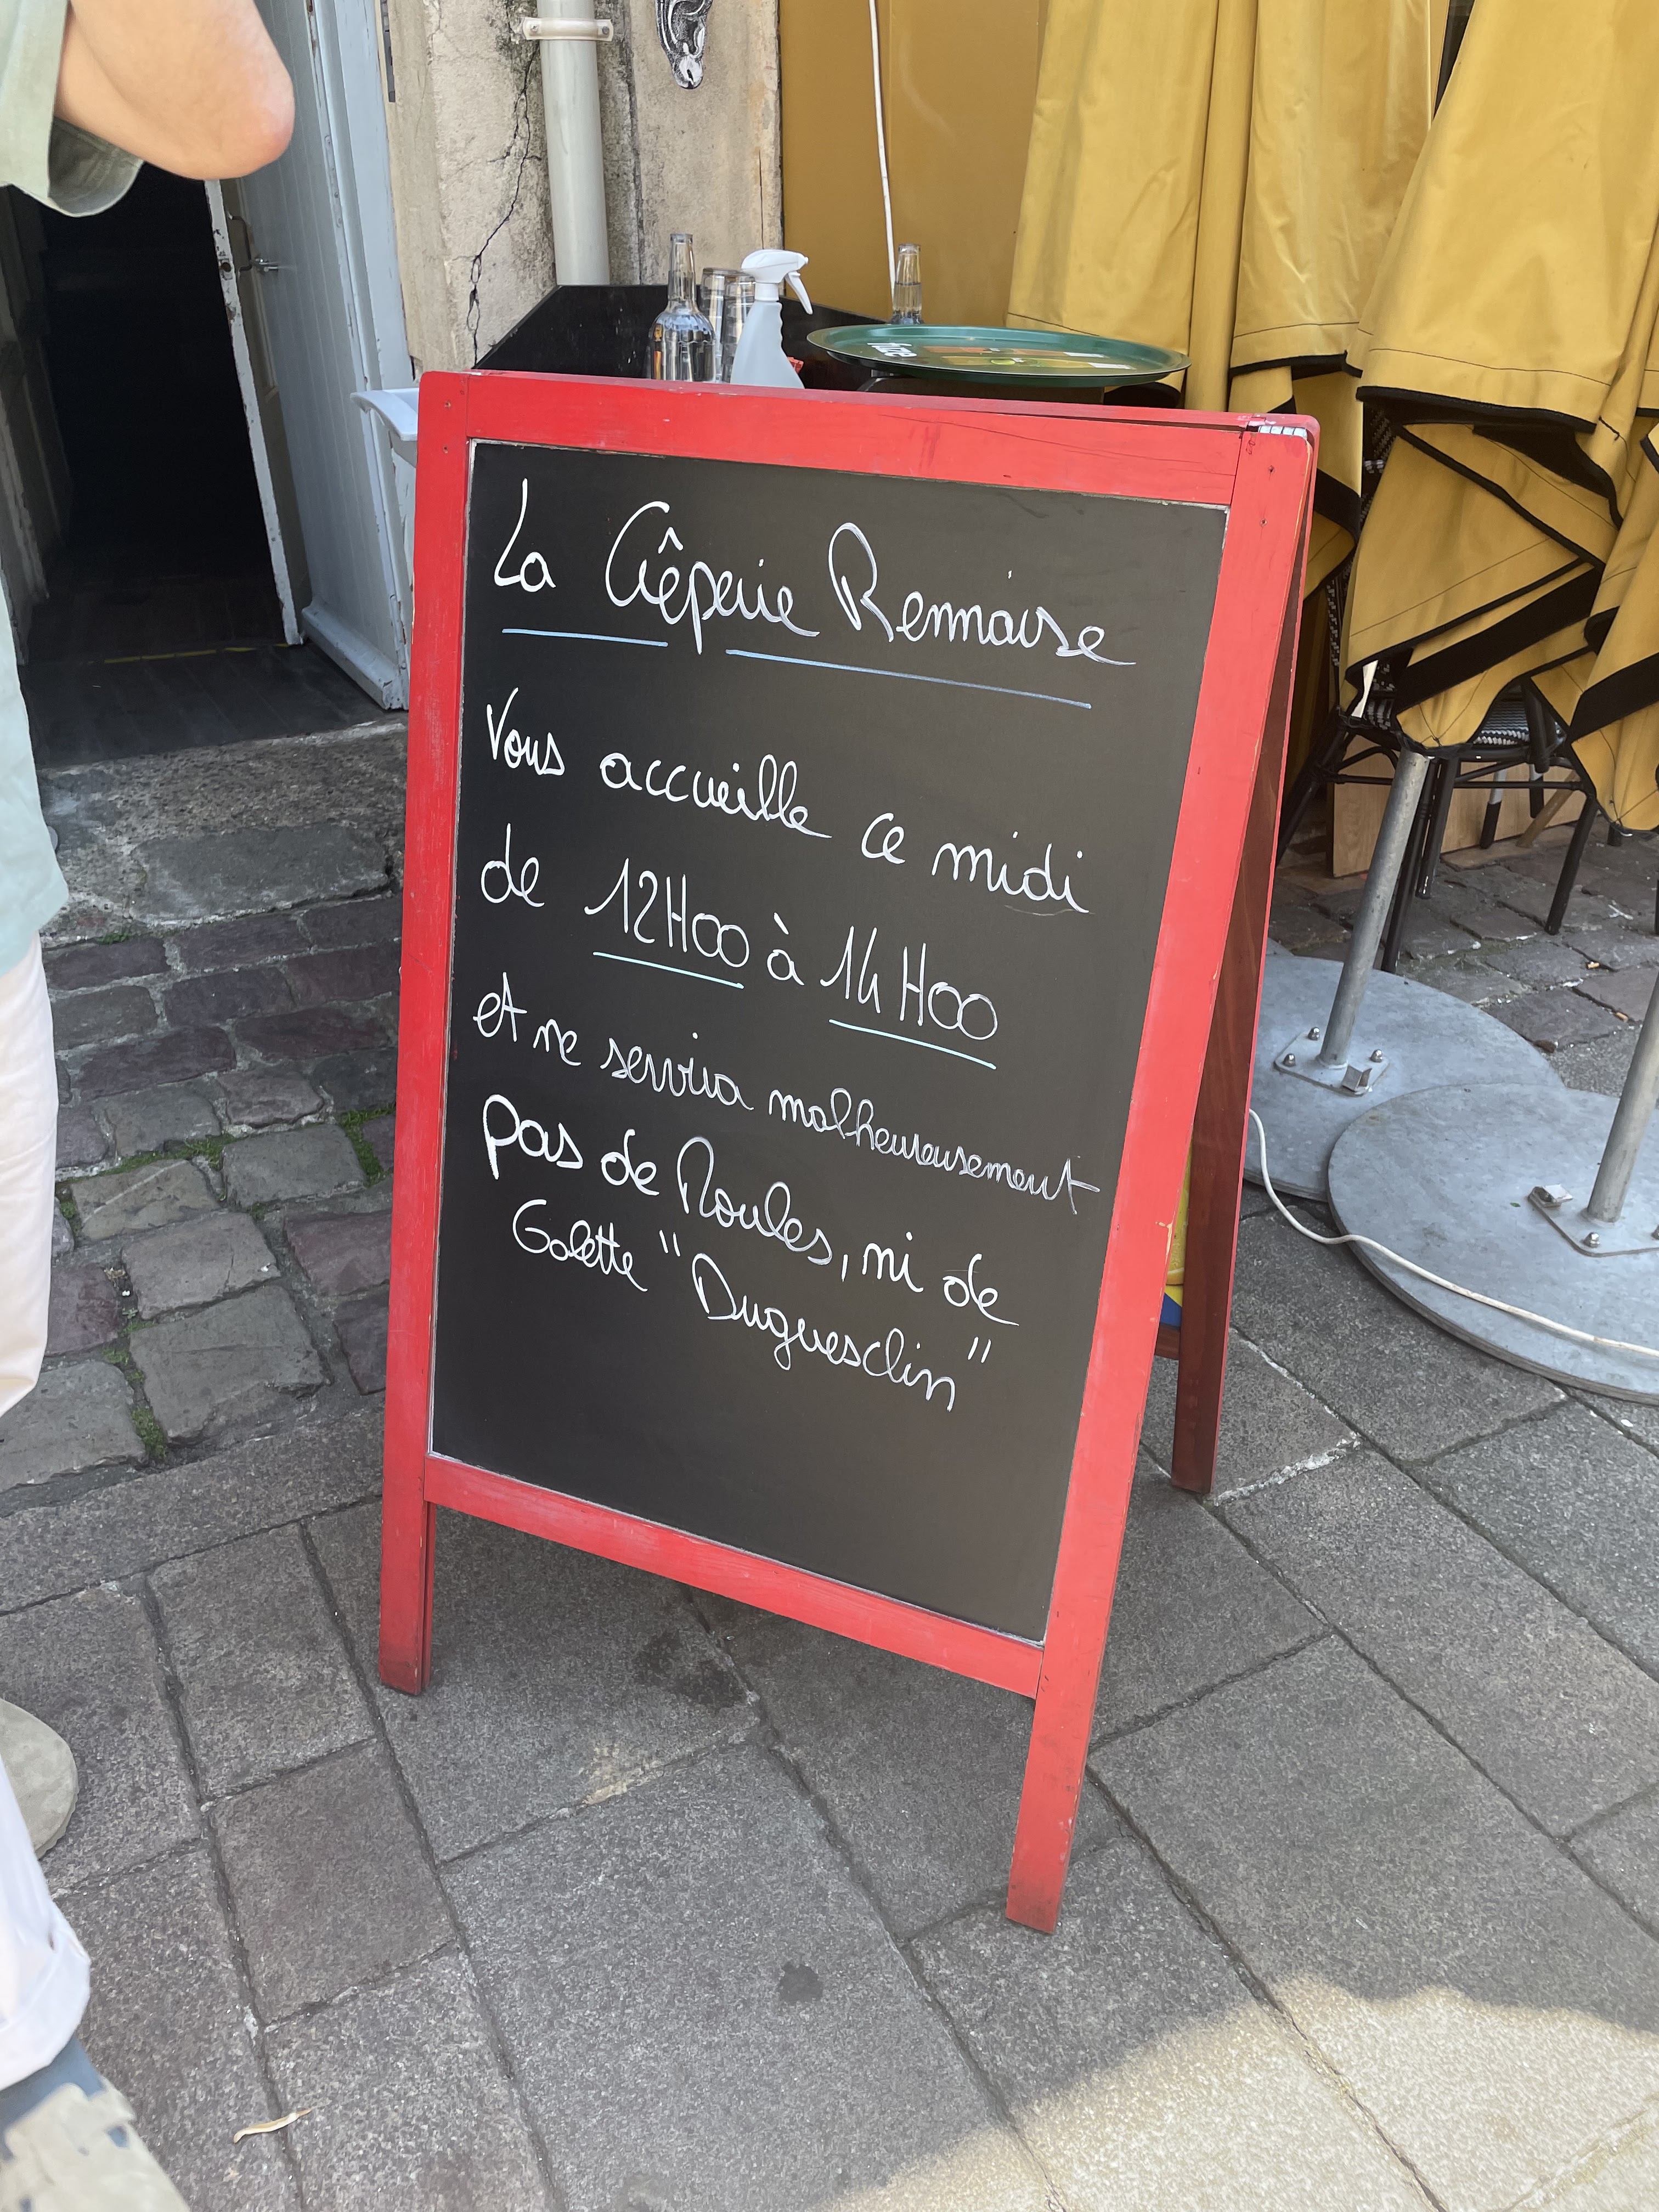 La Crêperie Rennaise
Vous accueille ce midi
de 12H00 à 14H00
et ne servira malheureusement
pas de Moules, ni de
Galette "Duguesclin"